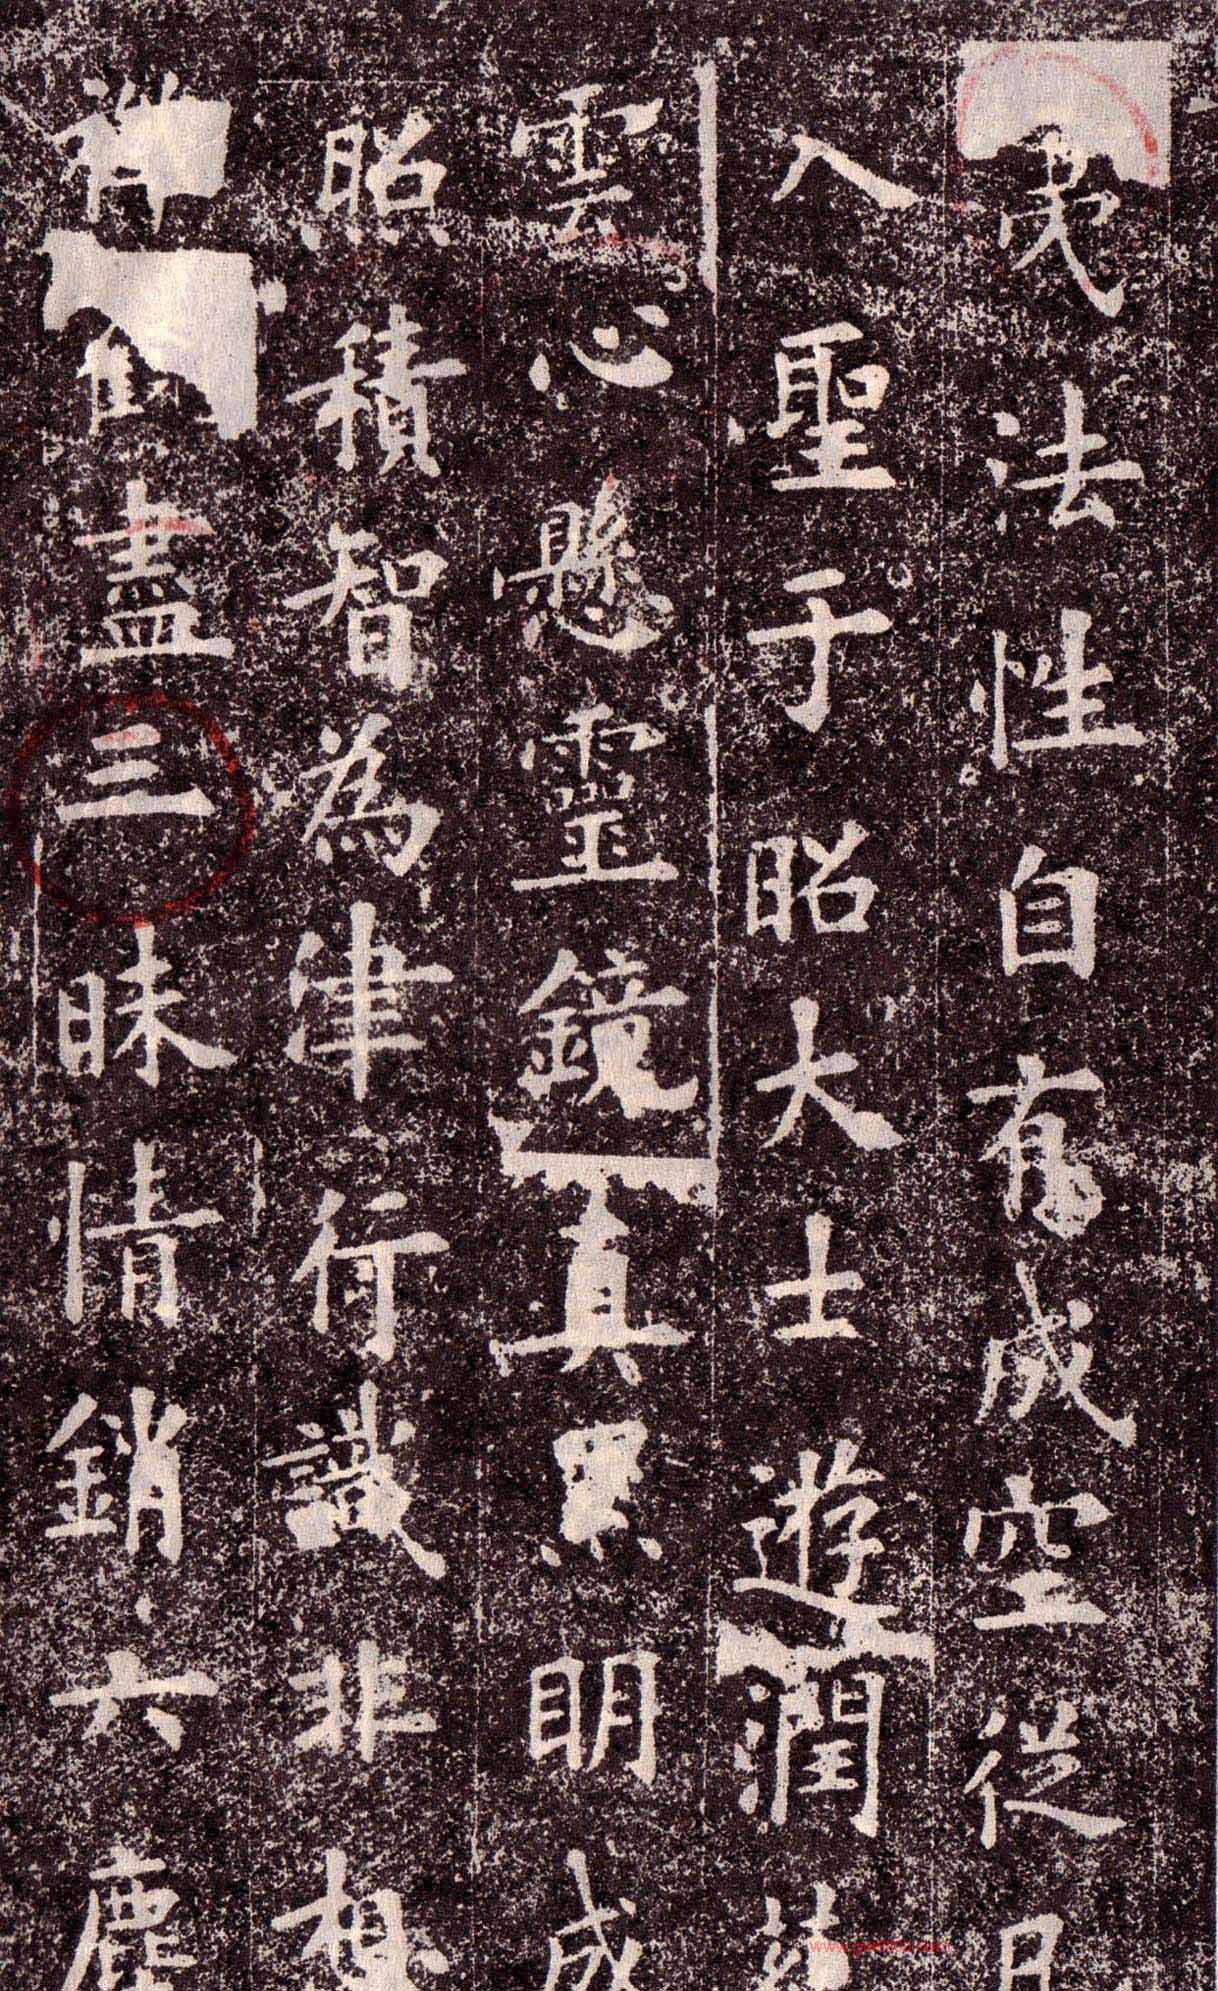 法性自有成空從
入聖于昭大士遊潤
雲心懸靈鏡真累明成
昭積智為津行識非想
禪盡三昧情銷六塵